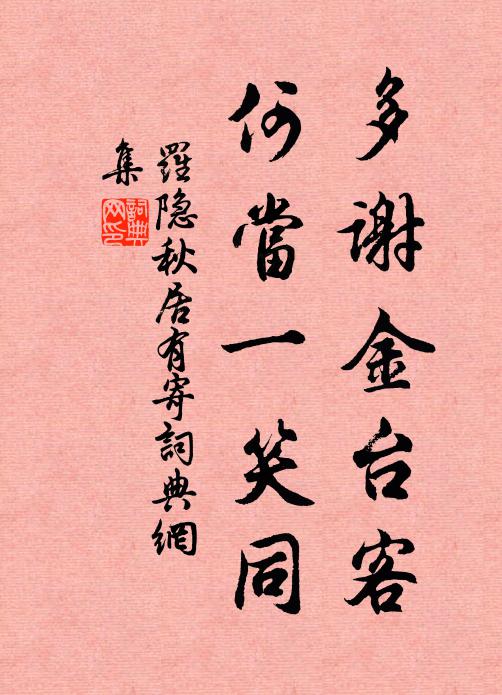 多謝金台客
何當一笑同
羅隐秋居有寄詞典網
集
詞典
网印